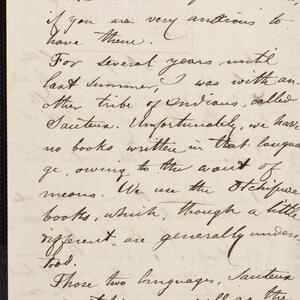 if you are very anxious to
have them.
For several years until
last summer, I was with an-
other tribe of Indians, called
Sauteux. Unfortunately, we have
no books written in that langua-
ge, owing to the want of
means. We use the Otchipwe
books, which, though a little
different, are generally unders-
tood.
Those two languages, Sauteux